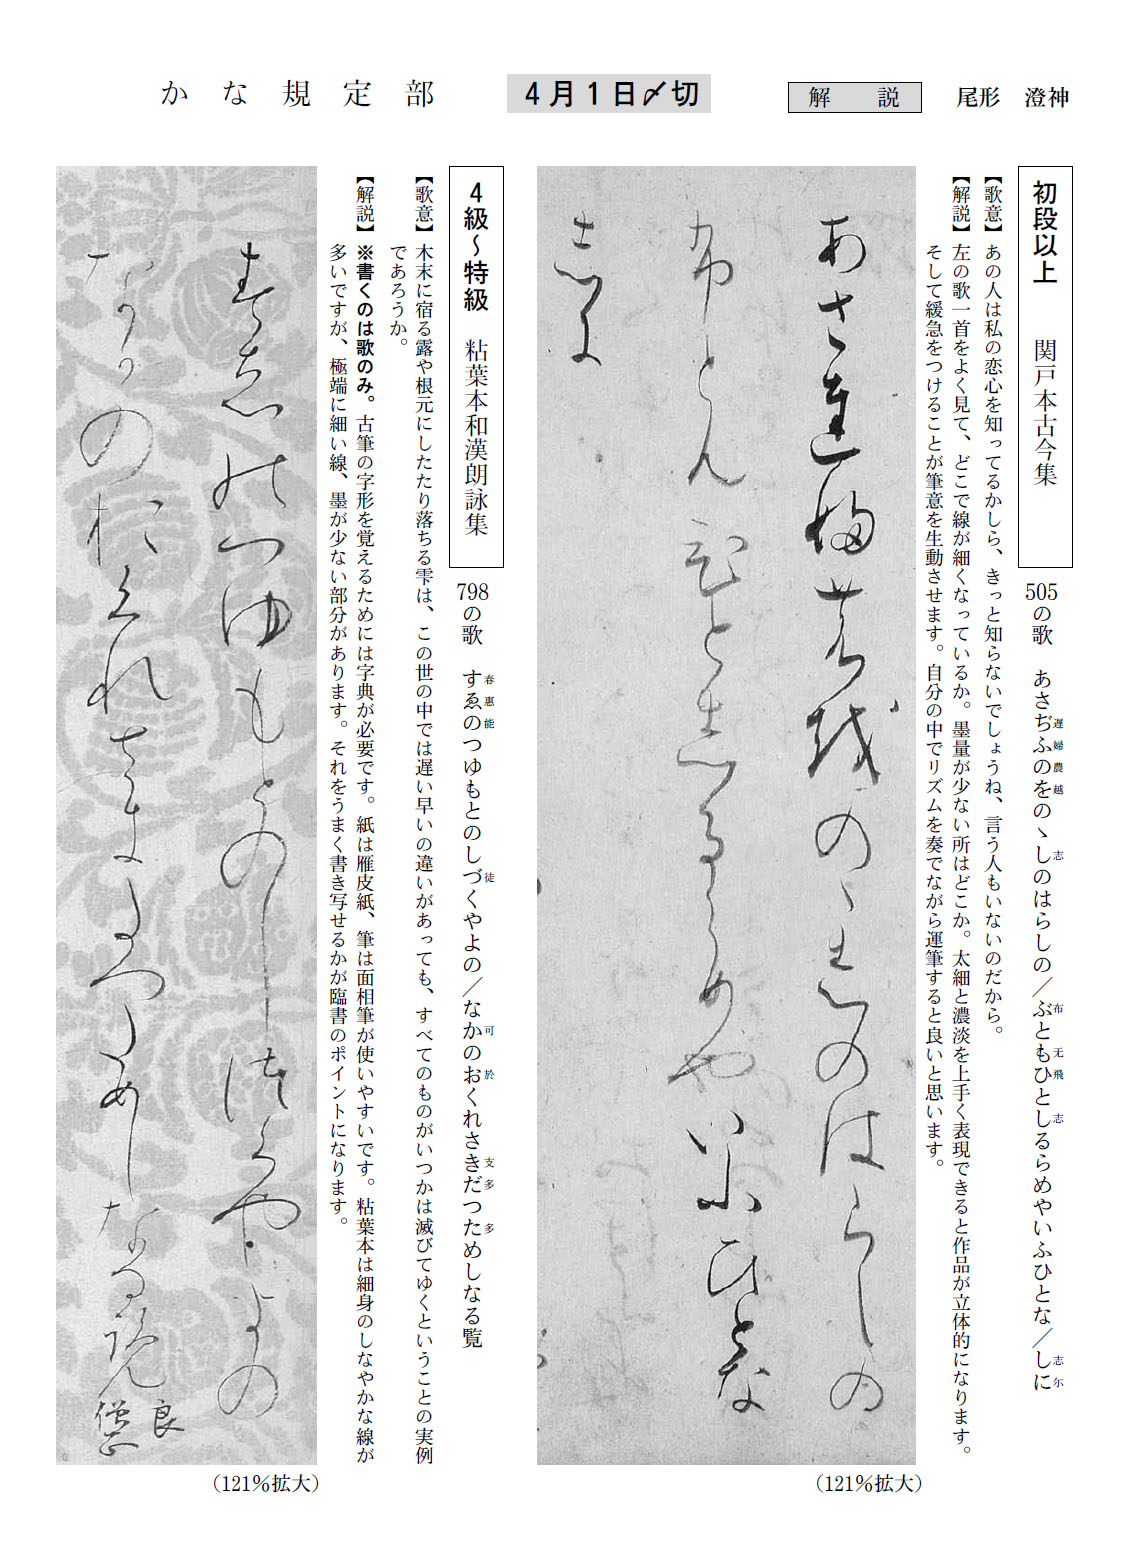 かな規定部
4月1日〆切
解 説
尾形 澄神
初段以上 関戸本古今集
505の歌 あさぢふのをのヽしのはらしの／ぶともひとしるらめやいふひとな／しに
遅 婦 農 越 志 布 无 飛 志 志 尓
【歌意】あの人は私の恋心を知ってるかしら、きっと知らないでしょうね、言う人もいないのだから。
【解説】左の歌一首をよく見て、どこで線が細くなっているか。墨量が少ない所はどこか。太細と濃淡を上手く表現できると作品が立体的になります。
そして緩急をつけることが筆意を生動させます。自分の中でリズムを奏でながら運筆すると良いと思います。
あさ遅婦農越のヽ志のはらしの
布とん飛と志るらめやいふひとな
志尓
（121％拡大）
4級〜特級 粘葉本和漢朗詠集
798の歌 すゑのつゆもとのしづくやよの／なかのおくれさきだつためしなる覧
春 惠 能 徒 可 於 支 多 多
【歌意】木末に宿る露や根元にしたたり落ちる雫は、この世の中では遅い早いの違いがあっても、すべてのものがいつかは滅びてゆくということの実例
であろうか。
【解説】※書くのは歌のみ。古筆の字形を覚えるためには字典が必要です。紙は雁皮紙、筆は面相筆が使いやすいです。粘葉本は細身のしなやかな線が
多いですが、極端に細い線、墨が少ない部分があります。それをうまく書き写せるかが臨書のポイントになります。
春惠能つゆもとのし徒くやよの
な可の於くれさ支多つ多めしなる覧
良僧正
（121％拡大）